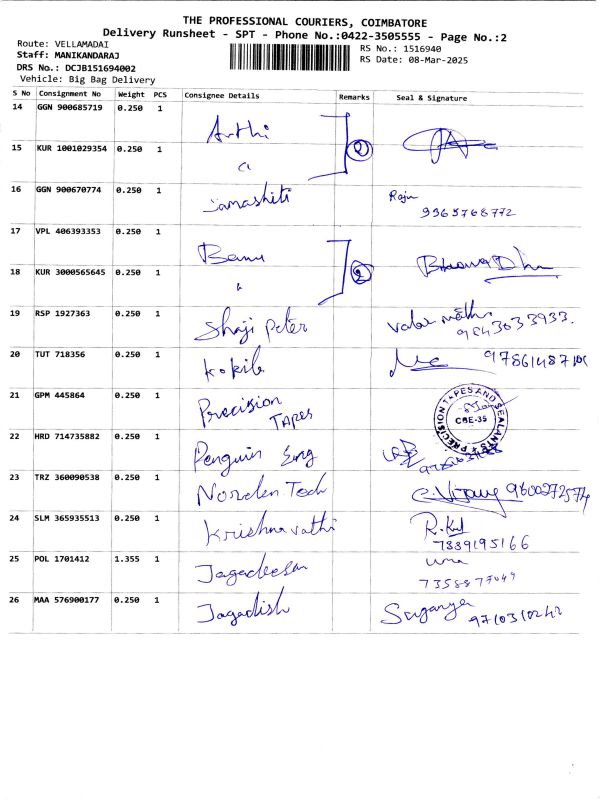 THE PROFESSIONAL COURIERS, COIMBATORE
Delivery Runsheet - SPT - Phone No.:0422-3505555 - Page No.:2
Route: VELLAMADAI
Staff: MANIKANDARAJ
DRS No.: DCJB151694002
Vehicle: Big Bag Delivery
RS No.: 1516940
RS Date: 08-Mar-2025
S No Consignment No Weight PCS Consignee Details Remarks Seal & Signature
14 GGN 900685719 0.250 1 Arthi
15 KUR 1001029354 0.250 1 2
16 GGN 900670774 0.250 1 Raju
9965768772
17 VPL 406393353 0.250 1 Banu
18 KUR 3000565645 0.250 1 2
19 RSP 1927363 0.250 1 Shaji Peter
9843033933.
20 TUT 718356 0.250 1 Kokila
21 GPM 445864 0.250 1 Precision
TAPES
PRECISION TAPES AND SEALANTS
CBE-35
22 HRD 714735882 0.250 1 Penguin Eng
23 TRZ 360090538 0.250 1 Norden Tech 9600272574
24 SLM 365935513 0.250 1 Krishnavathi
7339195166
25 POL 1701412 1.355 1 Jagadeesan uma
7358877049
26 MAA 576900177 0.250 1 Jagadish Suganya
9710310242